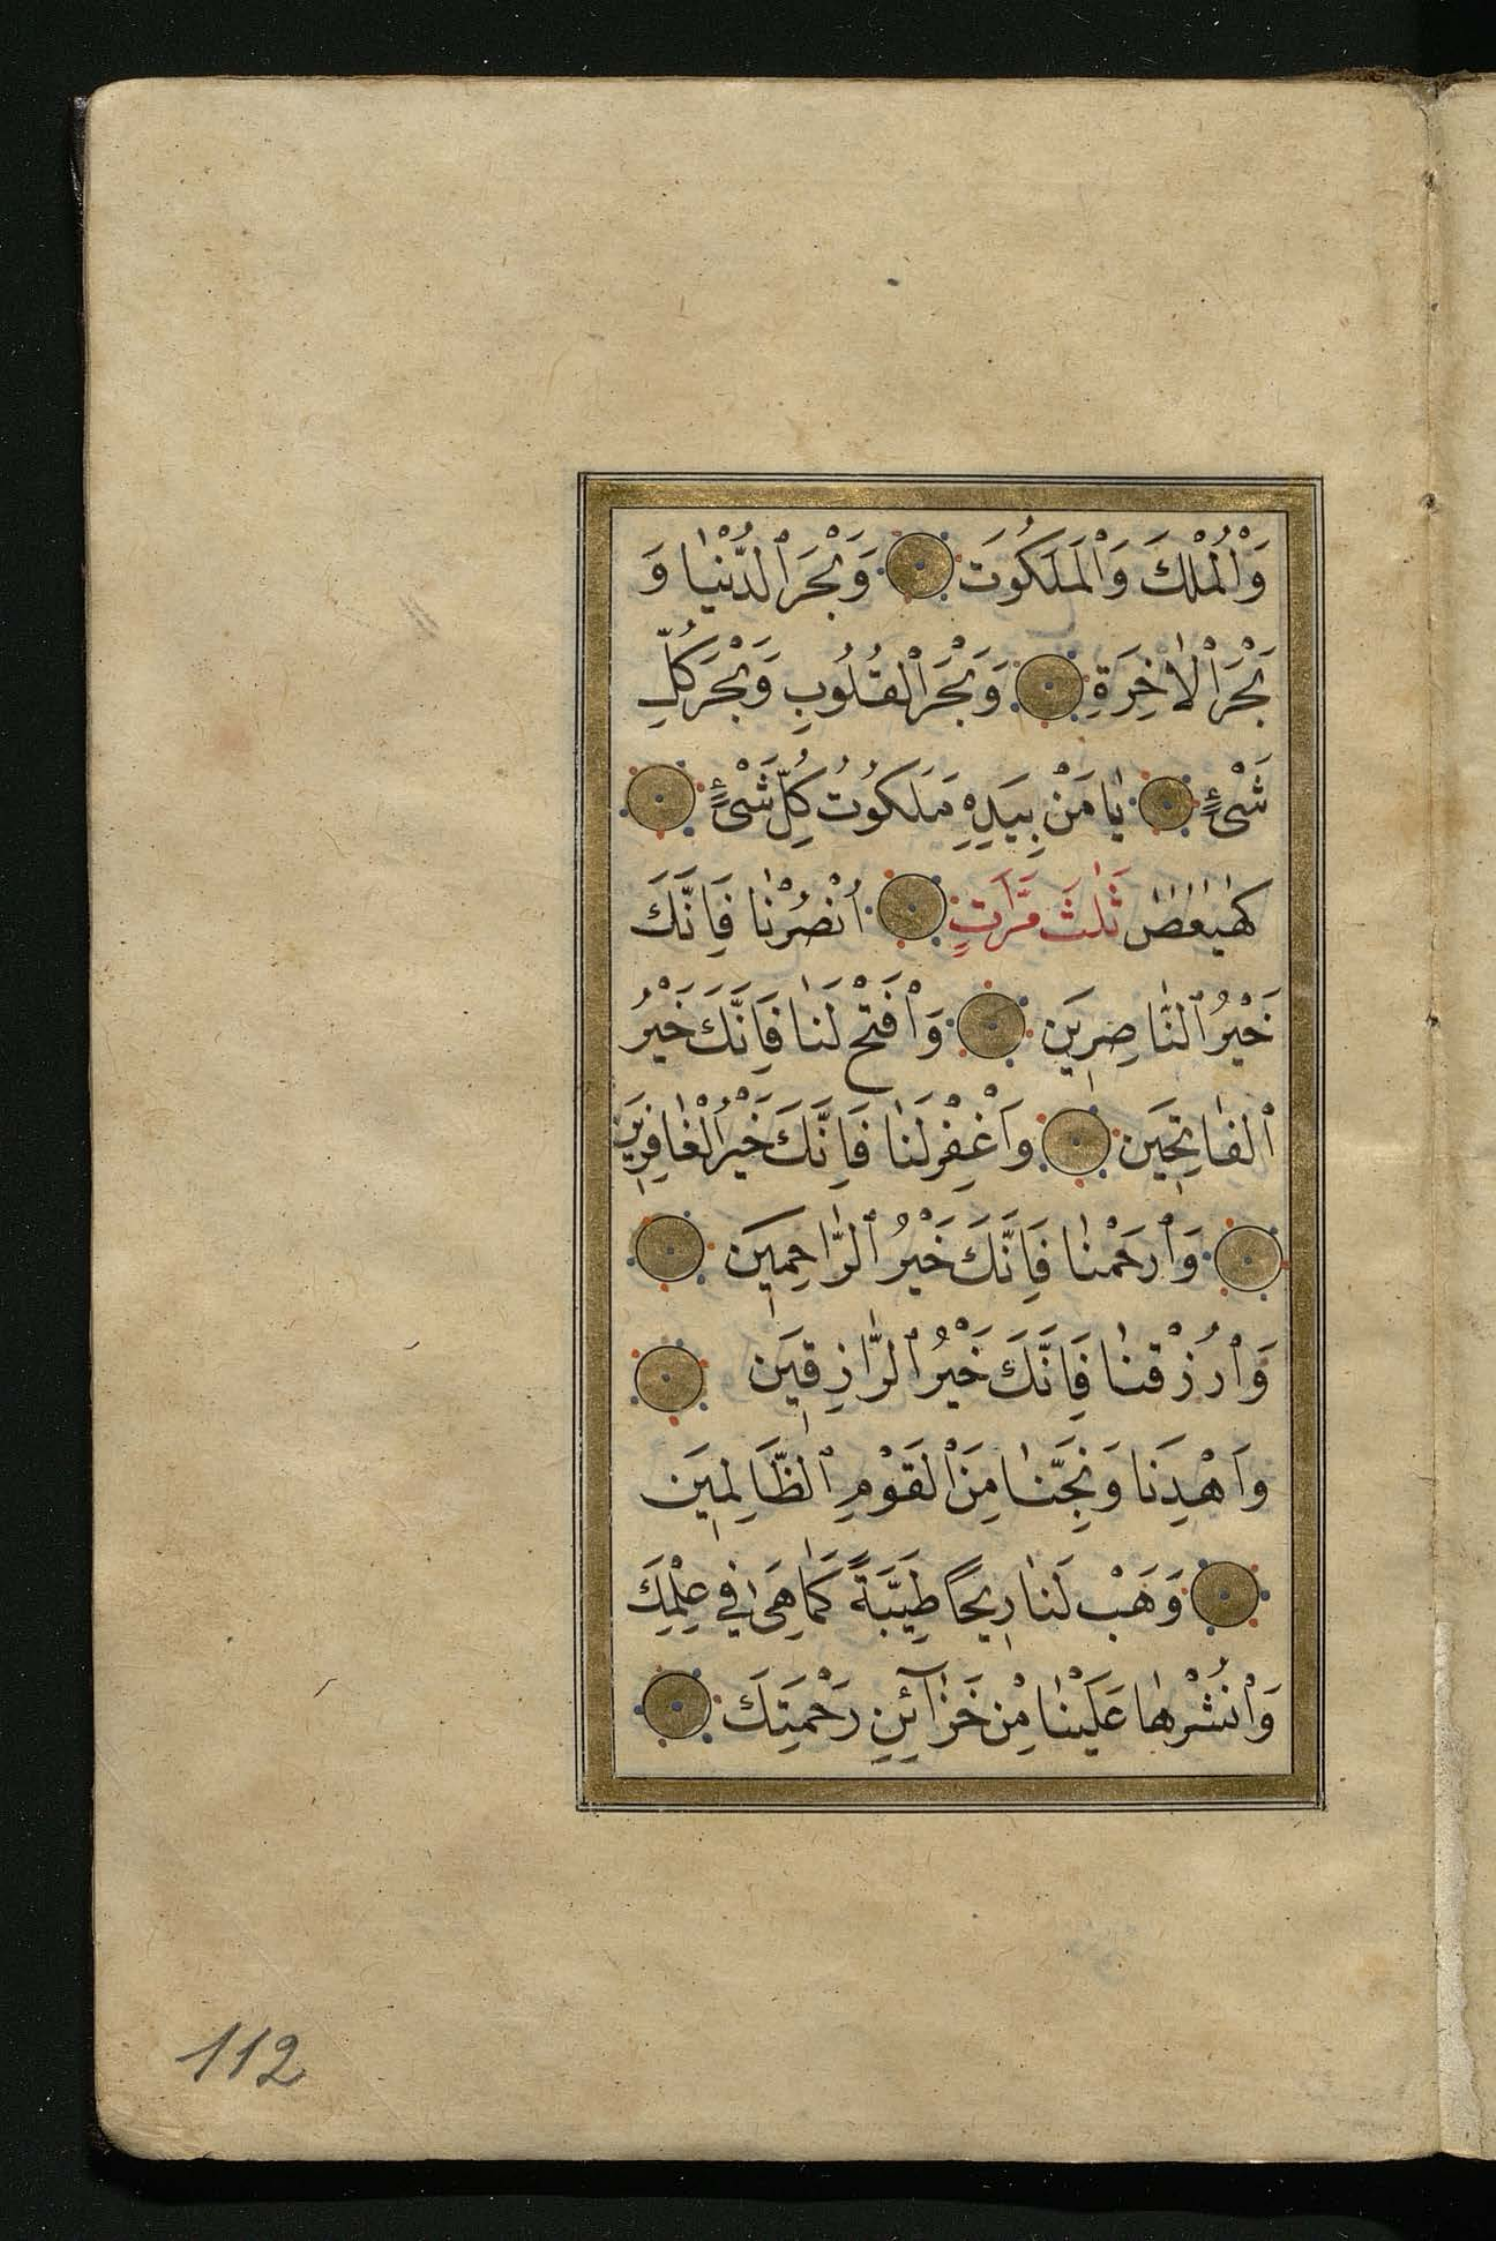 وَالْمُلْكَ وَالْمَلَكُوتَ وَبَحْرَ الدُّنْيَا وَ
بَحْرَ الْاٰخِرَةِ وَبَحْرَ الْقُلُوبِ وَبَحْرَ كُلِّ
شَيْءٍ يَا مَنْ بِيَدِهِ مَلَكُوتُ كُلِّ شَيْءٍ
كهيعص ثَلٰثَ مَرَّاتٍ اُنْصُرْنَا فَاِنَّكَ
خَيْرُ النَّاصِرِينَ وَافْتَحْ لَنَا فَاِنَّكَ خَيْرُ
الْفَاتِحِينَ وَاغْفِرْ لَنَا فَاِنَّكَ خَيْرُ الْغَافِرِينَ
وَارْحَمْنَا فَاِنَّكَ خَيْرُ الرَّاحِمِينَ
وَارْزُقْنَا فَاِنَّكَ خَيْرُ الرَّازِقِينَ
وَاهْدِنَا وَنَجِّنَا مِنَ الْقَوْمِ الظَّالِمِينَ
وَهَبْ لَنَا رِيحًا طَيِّبَةً كَمَا هِيَ فِي عِلْمِكَ
وَانْشُرْهَا عَلَيْنَا مِنْ خَزَآئِنِ رَحْمَتِكَ
112